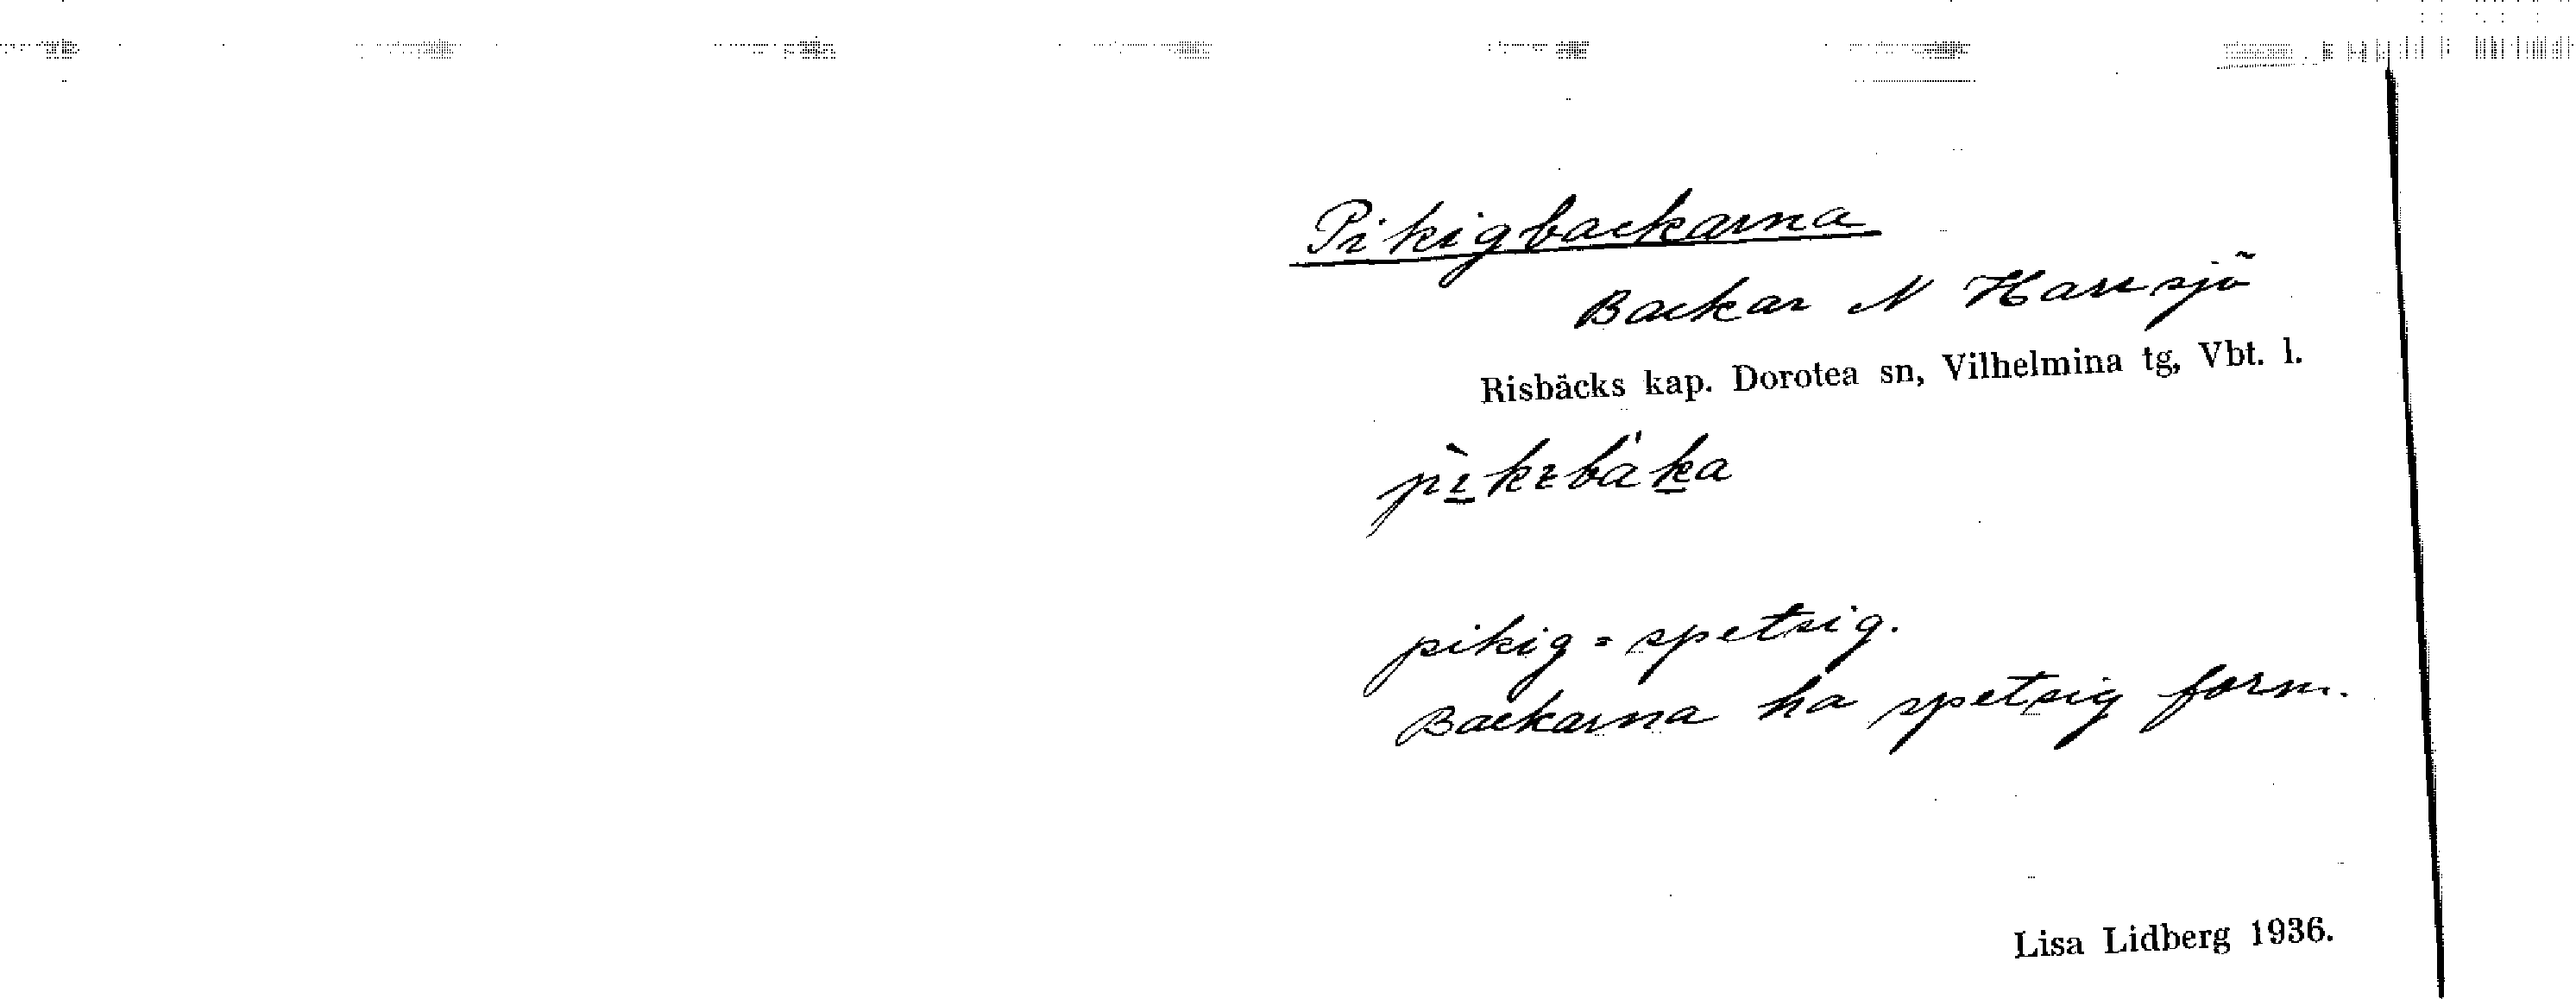 Pikigbackarna
Backar N Harrsjö
Risbäcks kap. Dorotea sn, Vilhelmina tg, Vbt. l.
pikig = spetsig.
Backarna ha spetsig form.
Lisa Lidberg 1936.